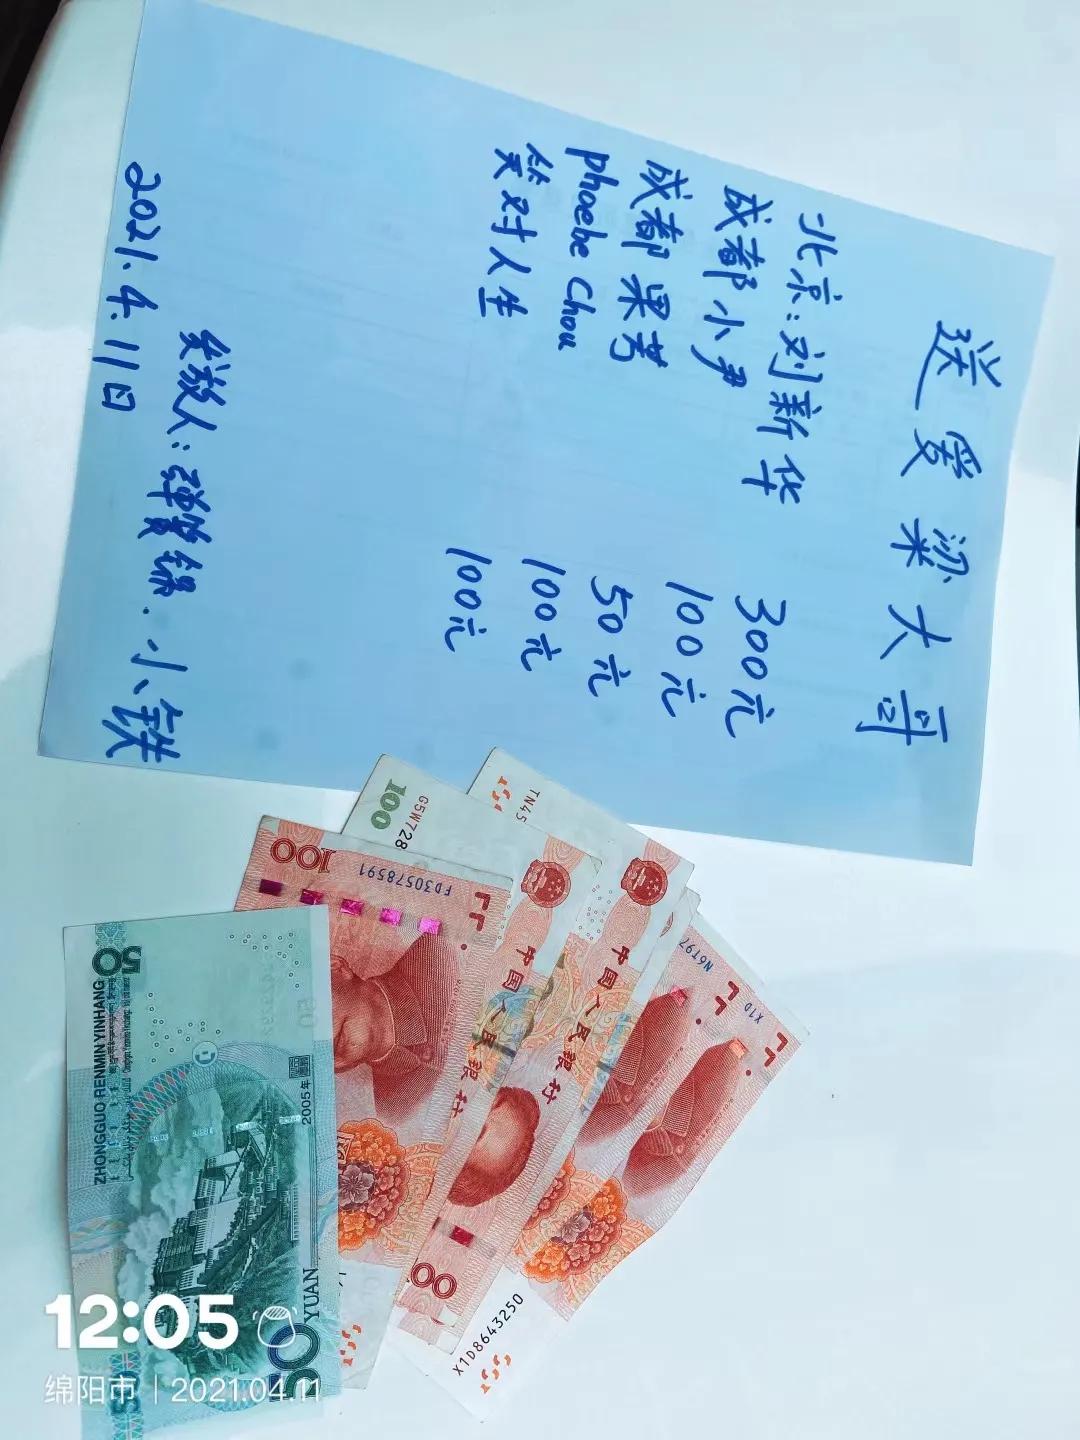 送爱梁大哥
北京:刘新华 300元
成都小尹 100元
成都果芳 50元
phoebe Chou 100元
笑对人生 100元
发放人:弹簧绵.小铁
2021.4.11日
TN45
G5W728
100
100
FD30578591
中国人民银行
中国人民银行
N6T97
X1D
X1D8643250
50
ZHONGGUO RENMIN YINHANG
2005年
50 YUAN
12:05
绵阳市 | 2021.04.11